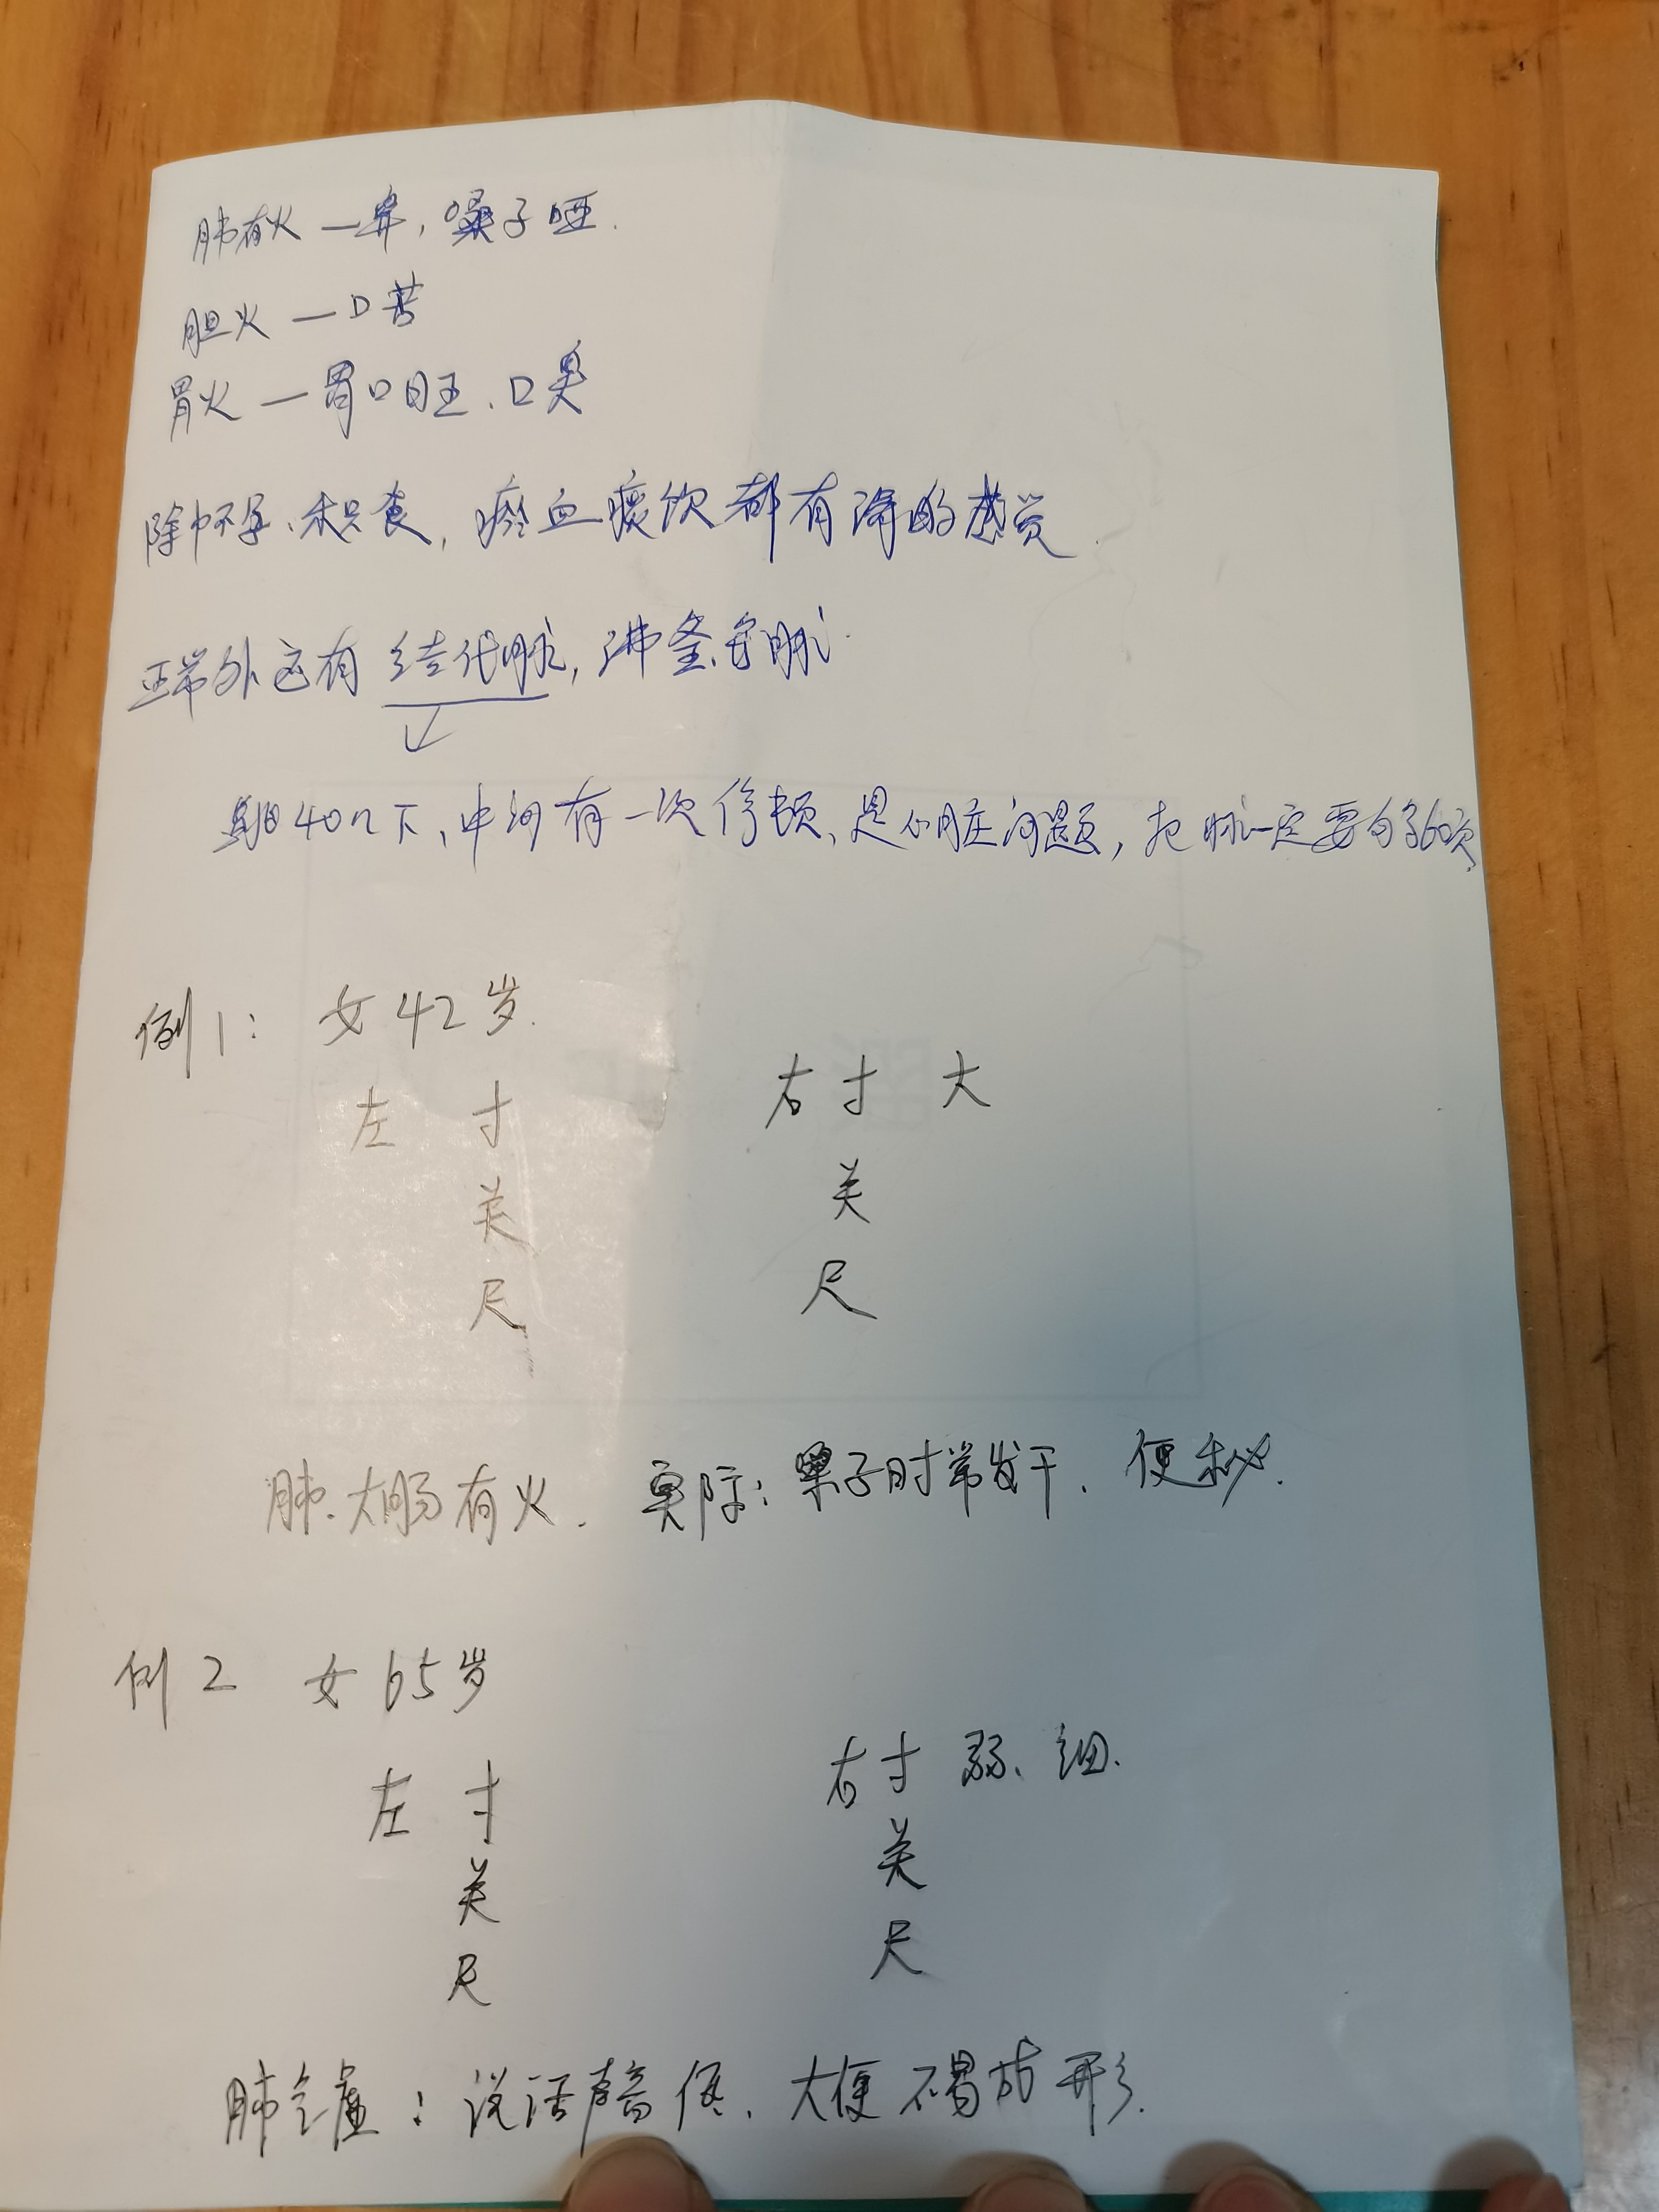 肺有火 — 鼻，嗓子哑.
胆火 — 口苦
胃火 — 胃口旺、口臭
除怀孕、积食，瘀血痰饮都有滑的感觉.
正常外还有结代脉，沸釜脉.
40以下、中间有一次停顿、是心脏问题，把脉一定要够60次
例1： 女42岁.
左 寸 右寸 大
关 关
尺 尺
肺、大肠有火. 实际：嗓子时常发干、便秘.
例2 女65岁
左 寸 右寸 弱、细.
关 关
尺 尺
肺气虚：说话声音低、大便不易成形.